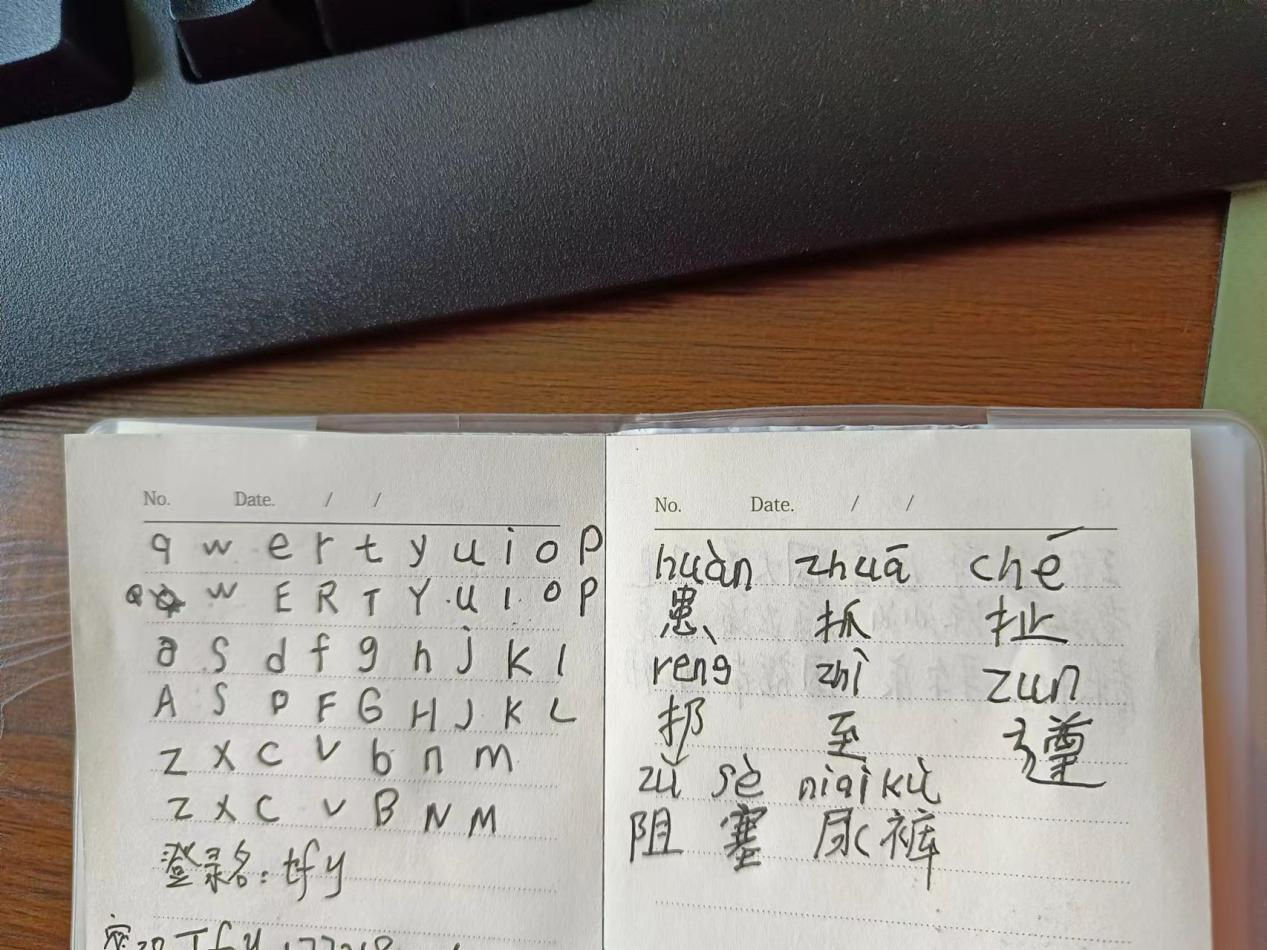 No. Date. / /
q w e r t y u i o P
Q W E R T Y U I O P
a S d f g h j K l
A S D F G H J K L
Z X C V b n m
Z X C V B N M
登录名:tfy
No. Date. / /
huàn zhuā ché
患 抓 扯
reng zhì zun
扔 至 遵
zǔ sè niài kù
阻 塞 尿 裤